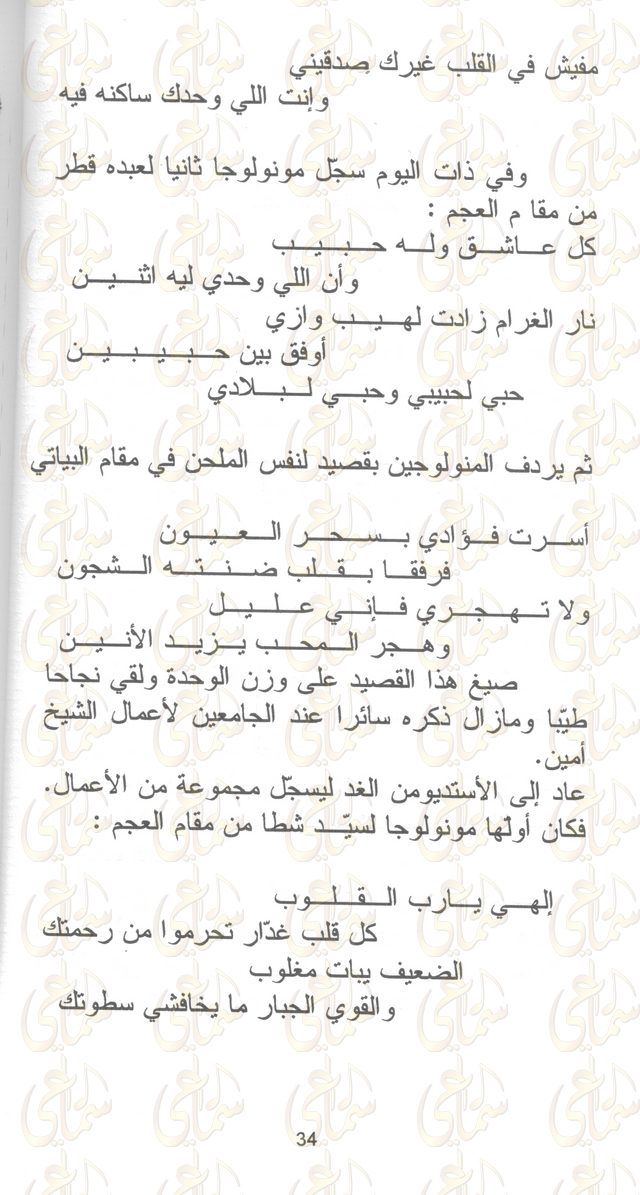 مفيش في القلب غيرك صدقيني
وإنت اللي وحدك ساكنه فيه
وفي ذات اليوم سجّل مونولوجا ثانيا لعبده قطر
من مقا م العجم :
كل عـاشـق ولـه حـبـيـب
وأن اللي وحدي ليه اثنـيـن
نار الغرام زادت لهـيـب وازي
أوفق بين حـبـيـبـيـن
حبي لحبيبي وحبـي لـبـلادي
ثم يردف المنولوجين بقصيد لنفس الملحن في مقام البياتي
أسـرت فـؤادي بـسـحـر الـعـيـون
فرفقـا بـقـلب ضـنـتـه الـشجون
ولا تـهـجـري فـإنـي عـلـيـل
وهـجر الـمحـب يـزيـد الأنـيـن
صيغ هذا القصيد على وزن الوحدة ولقي نجاحا
طيّبا ومازال ذكره سائرا عند الجامعين لأعمال الشيخ
أمين.
عاد إلى الأستديومن الغد ليسجّل مجموعة من الأعمال.
فكان أولّها مونولوجا لسيّـد شطا من مقام العجم :
إلهـي يـارب الـقـلـوب
كل قلب غدّار تحرموا من رحمتك
الضعيف يبات مغلوب
والقوي الجبار ما يخافشي سطوتك
34
سماعي